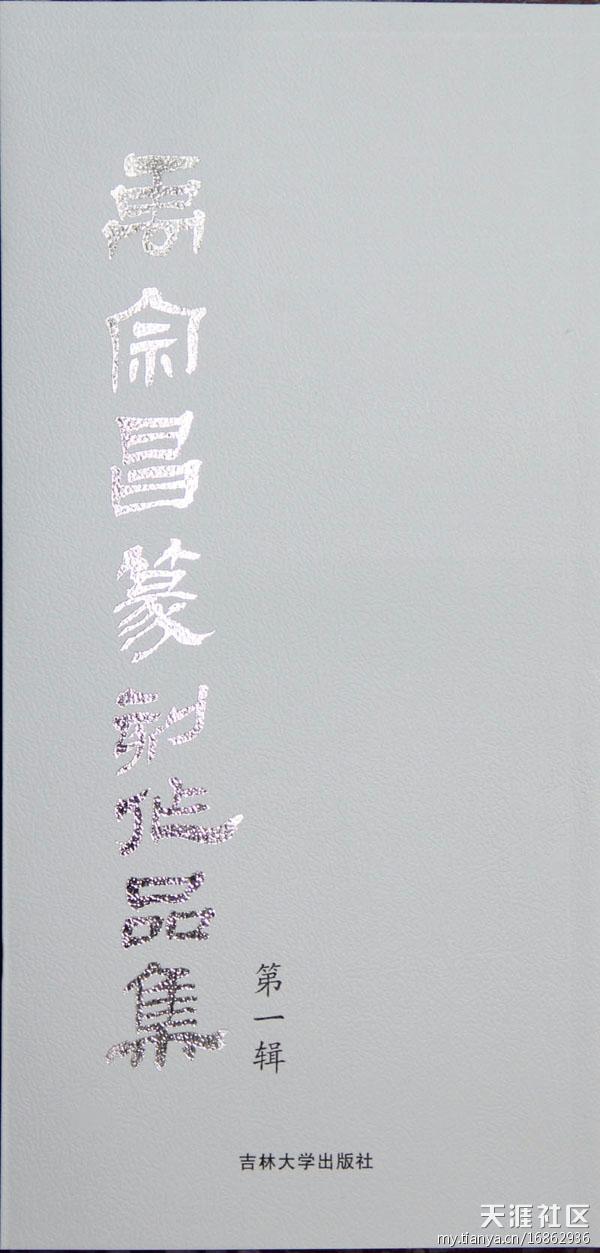 宗昌篆刻作品集
第一辑
吉林大学出版社
天涯社区
my.tianya.cn/16862936